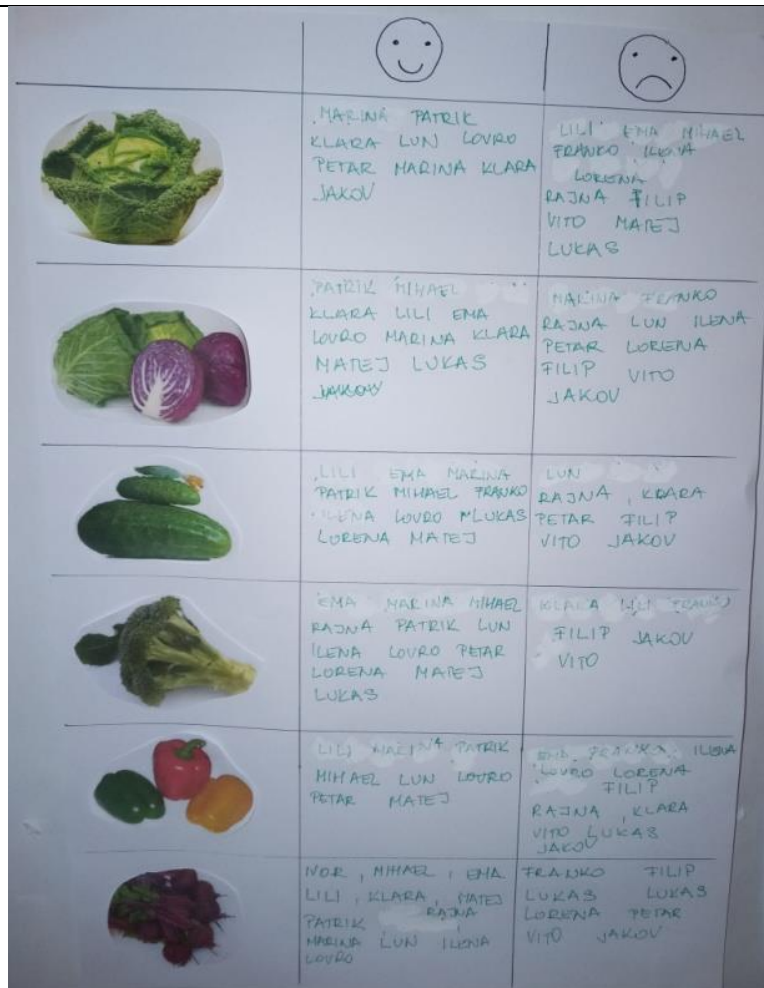 MARINA PATRIK
KLARA LUN LOVRO
PETAR MARINA KLARA
JAKOV
LILI EMA MIHAEL
FRANKO ILENA
LORENA
RAJNA FILIP
VITO MATEJ
LUKAS
PATRIK MIHAEL
KLARA LILI EMA
LOVRO MARINA KLARA
MATEJ LUKAS
JAKOV
MARINA FRANKO
RAJNA LUN ILENA
PETAR LORENA
FILIP VITO
JAKOV
LILI EMA MARINA
PATRIK MIHAEL FRANKO
ILENA LOVRO MLUKAS
LORENA MATEJ
LUN
RAJNA , KLARA
PETAR FILIP
VITO JAKOV
EMA MARINA MIHAEL
RAJNA PATRIK LUN
ILENA LOVRO PETAR
LORENA MATEJ
LUKAS
KLARA LILI FRANKO
FILIP JAKOV
VITO
LILI MARINA PATRIK
MIHAEL LUN LOVRO
PETAR MATEJ
EMA FRANKO ILENA
LOVRO LORENA
FILIP
RAJNA , KLARA
VITO LUKAS
JAKOV
NOR , MIHAEL , EMA
LILI , KLARA , MATEJ
PATRIK RAJNA
MARINA LUN ILENA
LOVRO
FRANKO FILIP
LUKAS LUKAS
LORENA PETAR
VITO JAKOV